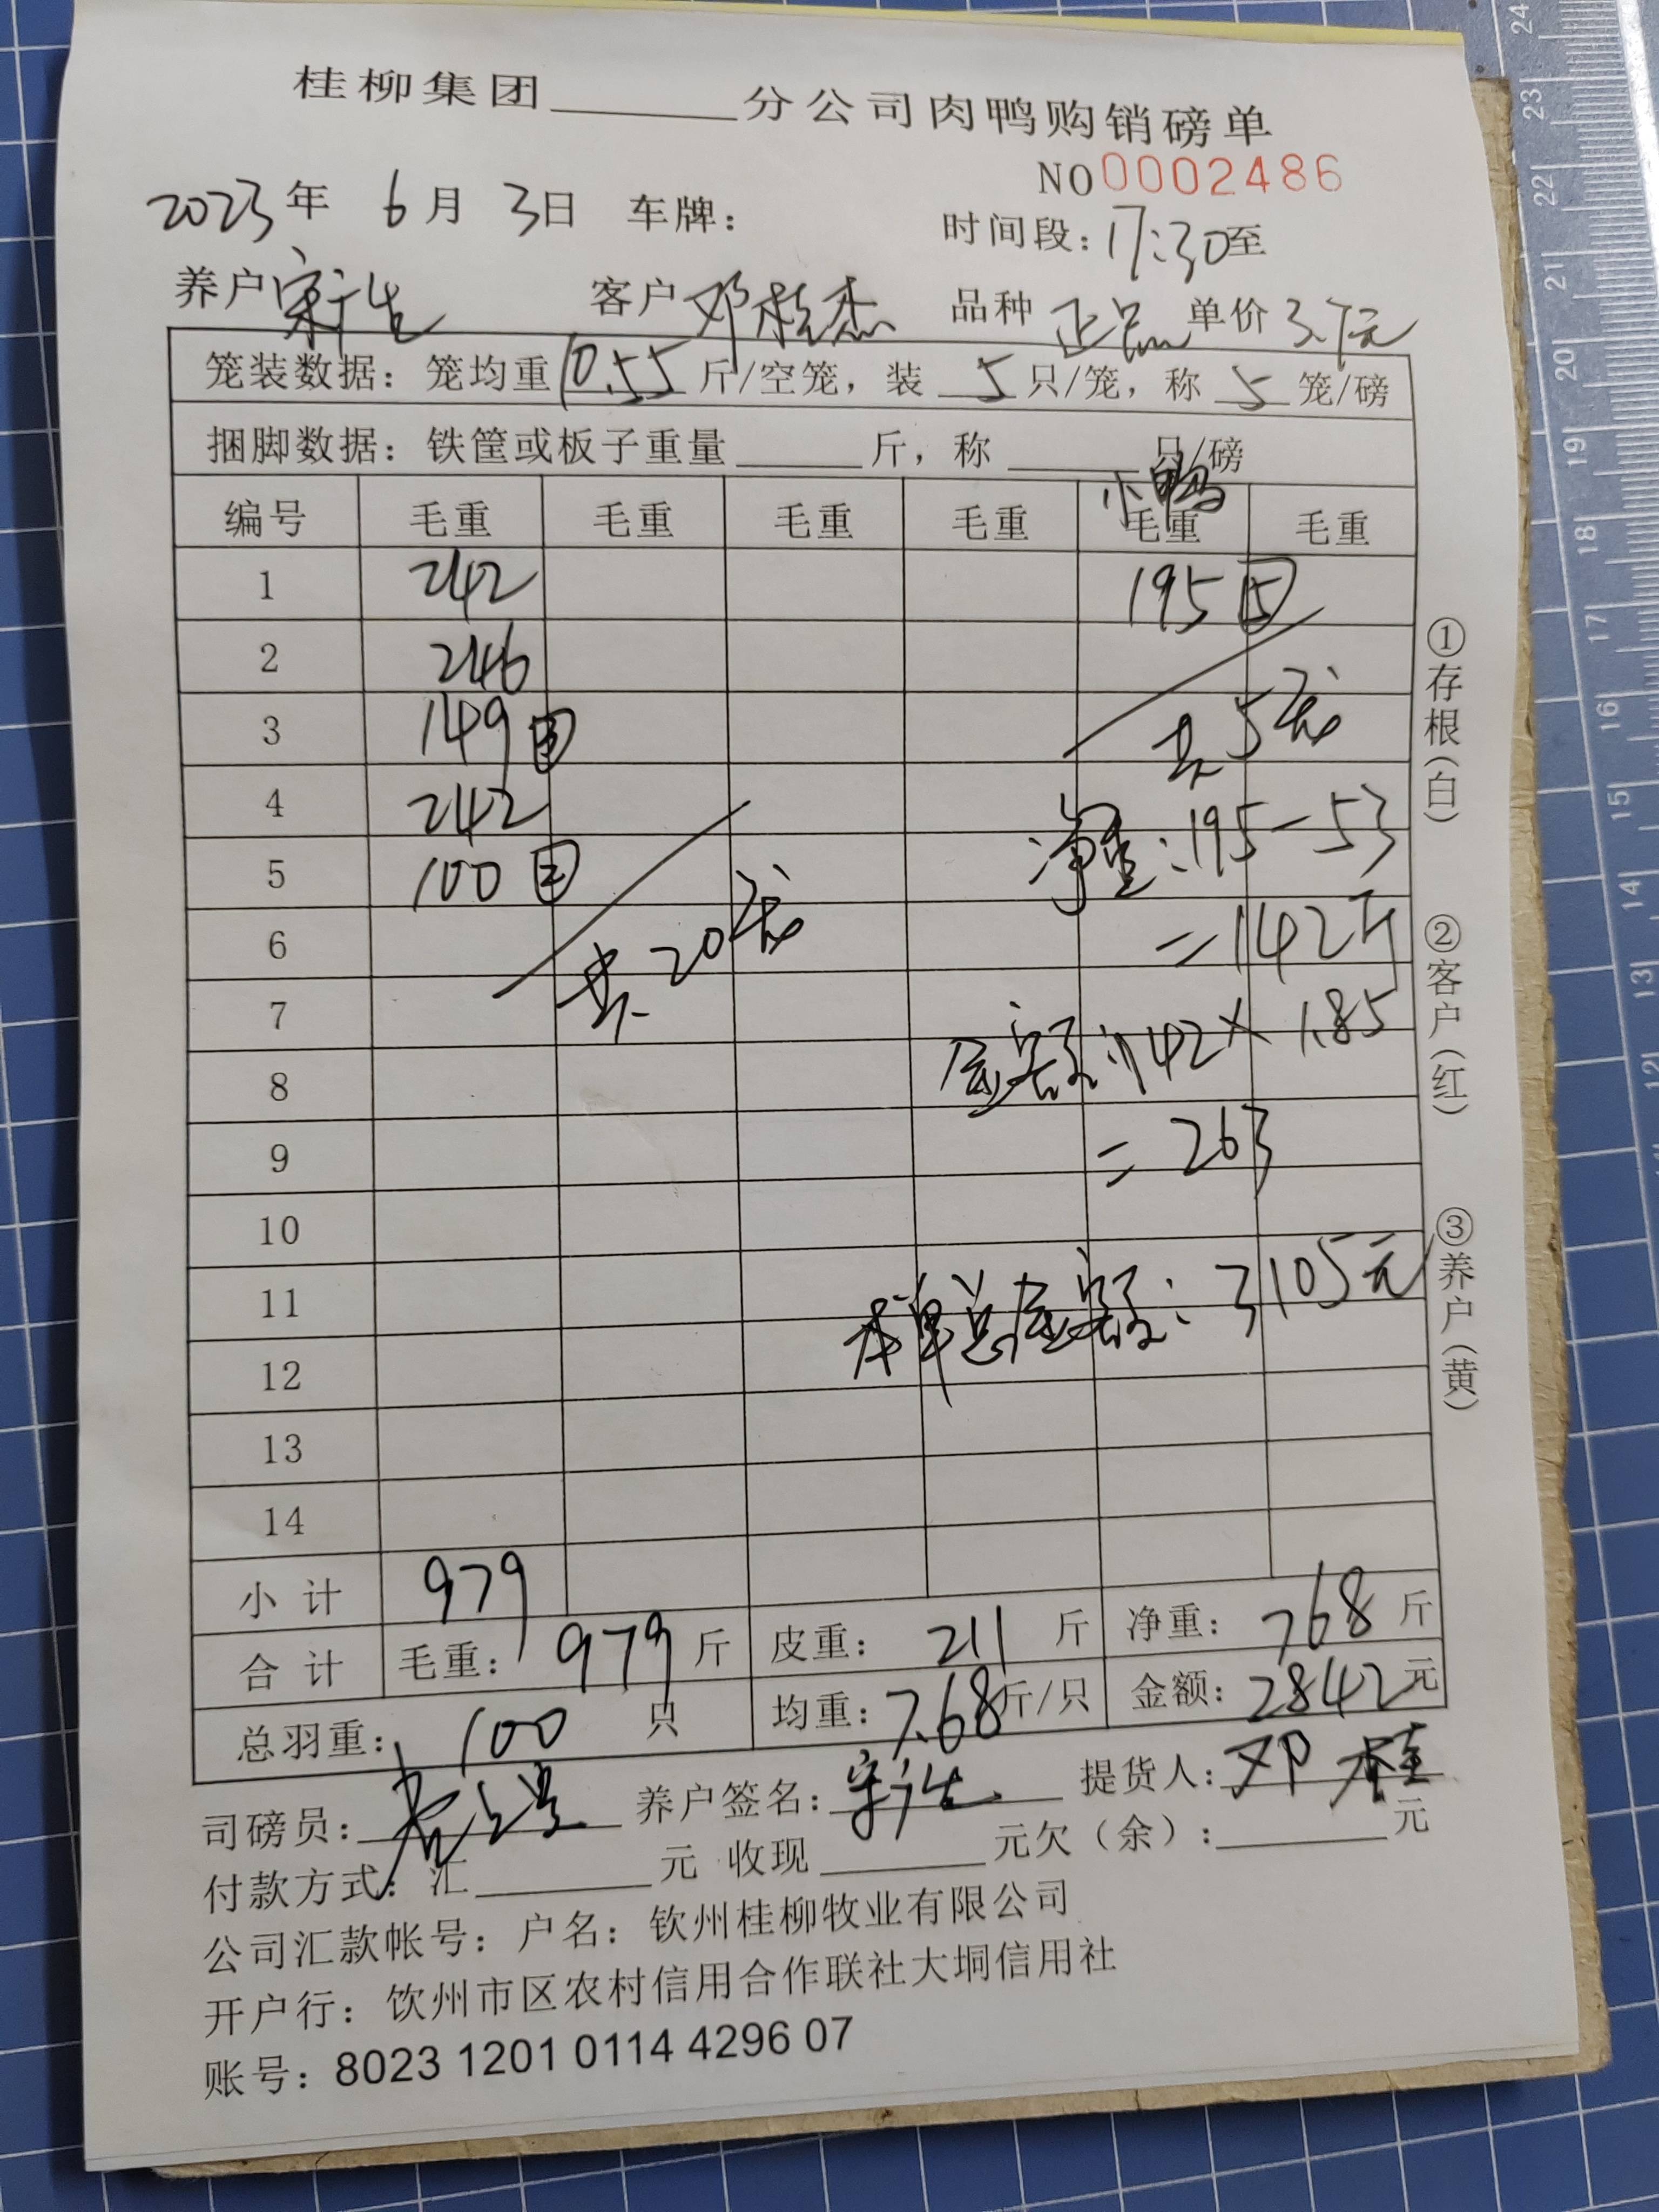 桂柳集团______分公司肉鸭购销磅单
NO 0002486
2023年 6月 3日 车牌: 时间段: 17:30至
养户 宋广生 客户 邓桂杰 品种 正品 单价 3.7元
笼装数据: 笼均重 10.55 斤/空笼, 装 5 只/笼, 称 5 笼/磅
捆脚数据: 铁筐或板子重量______斤, 称______只/磅
小鸭
编号 毛重 毛重 毛重 毛重 毛重 毛重
1 242 195 ⑤
2 246
3 149 ③ 共5笼
4 242 净重:195-53
5 100 ②
6 共20笼 =142斤
7 金额:142×1.85
8
9 =263
10
11 本单总金额:3105元
12
13
14
小计 979
合计 毛重: 979 斤 皮重: 211 斤 净重: 768 斤
总羽重: 100 只 均重: 7.68 斤/只 金额: 2842 元
司磅员: 养户签名: 宋广生 提货人: 邓桂
付款方式: 汇______元 收现______元欠(余):______元
公司汇款帐号: 户名: 钦州桂柳牧业有限公司
开户行: 钦州市区农村信用合作联社大垌信用社
账号: 8023 1201 0114 4296 07
①存根(白)
②客户(红)
③养户(黄)
24
23
22
21
20
19
18
17
16
15
14
13
12